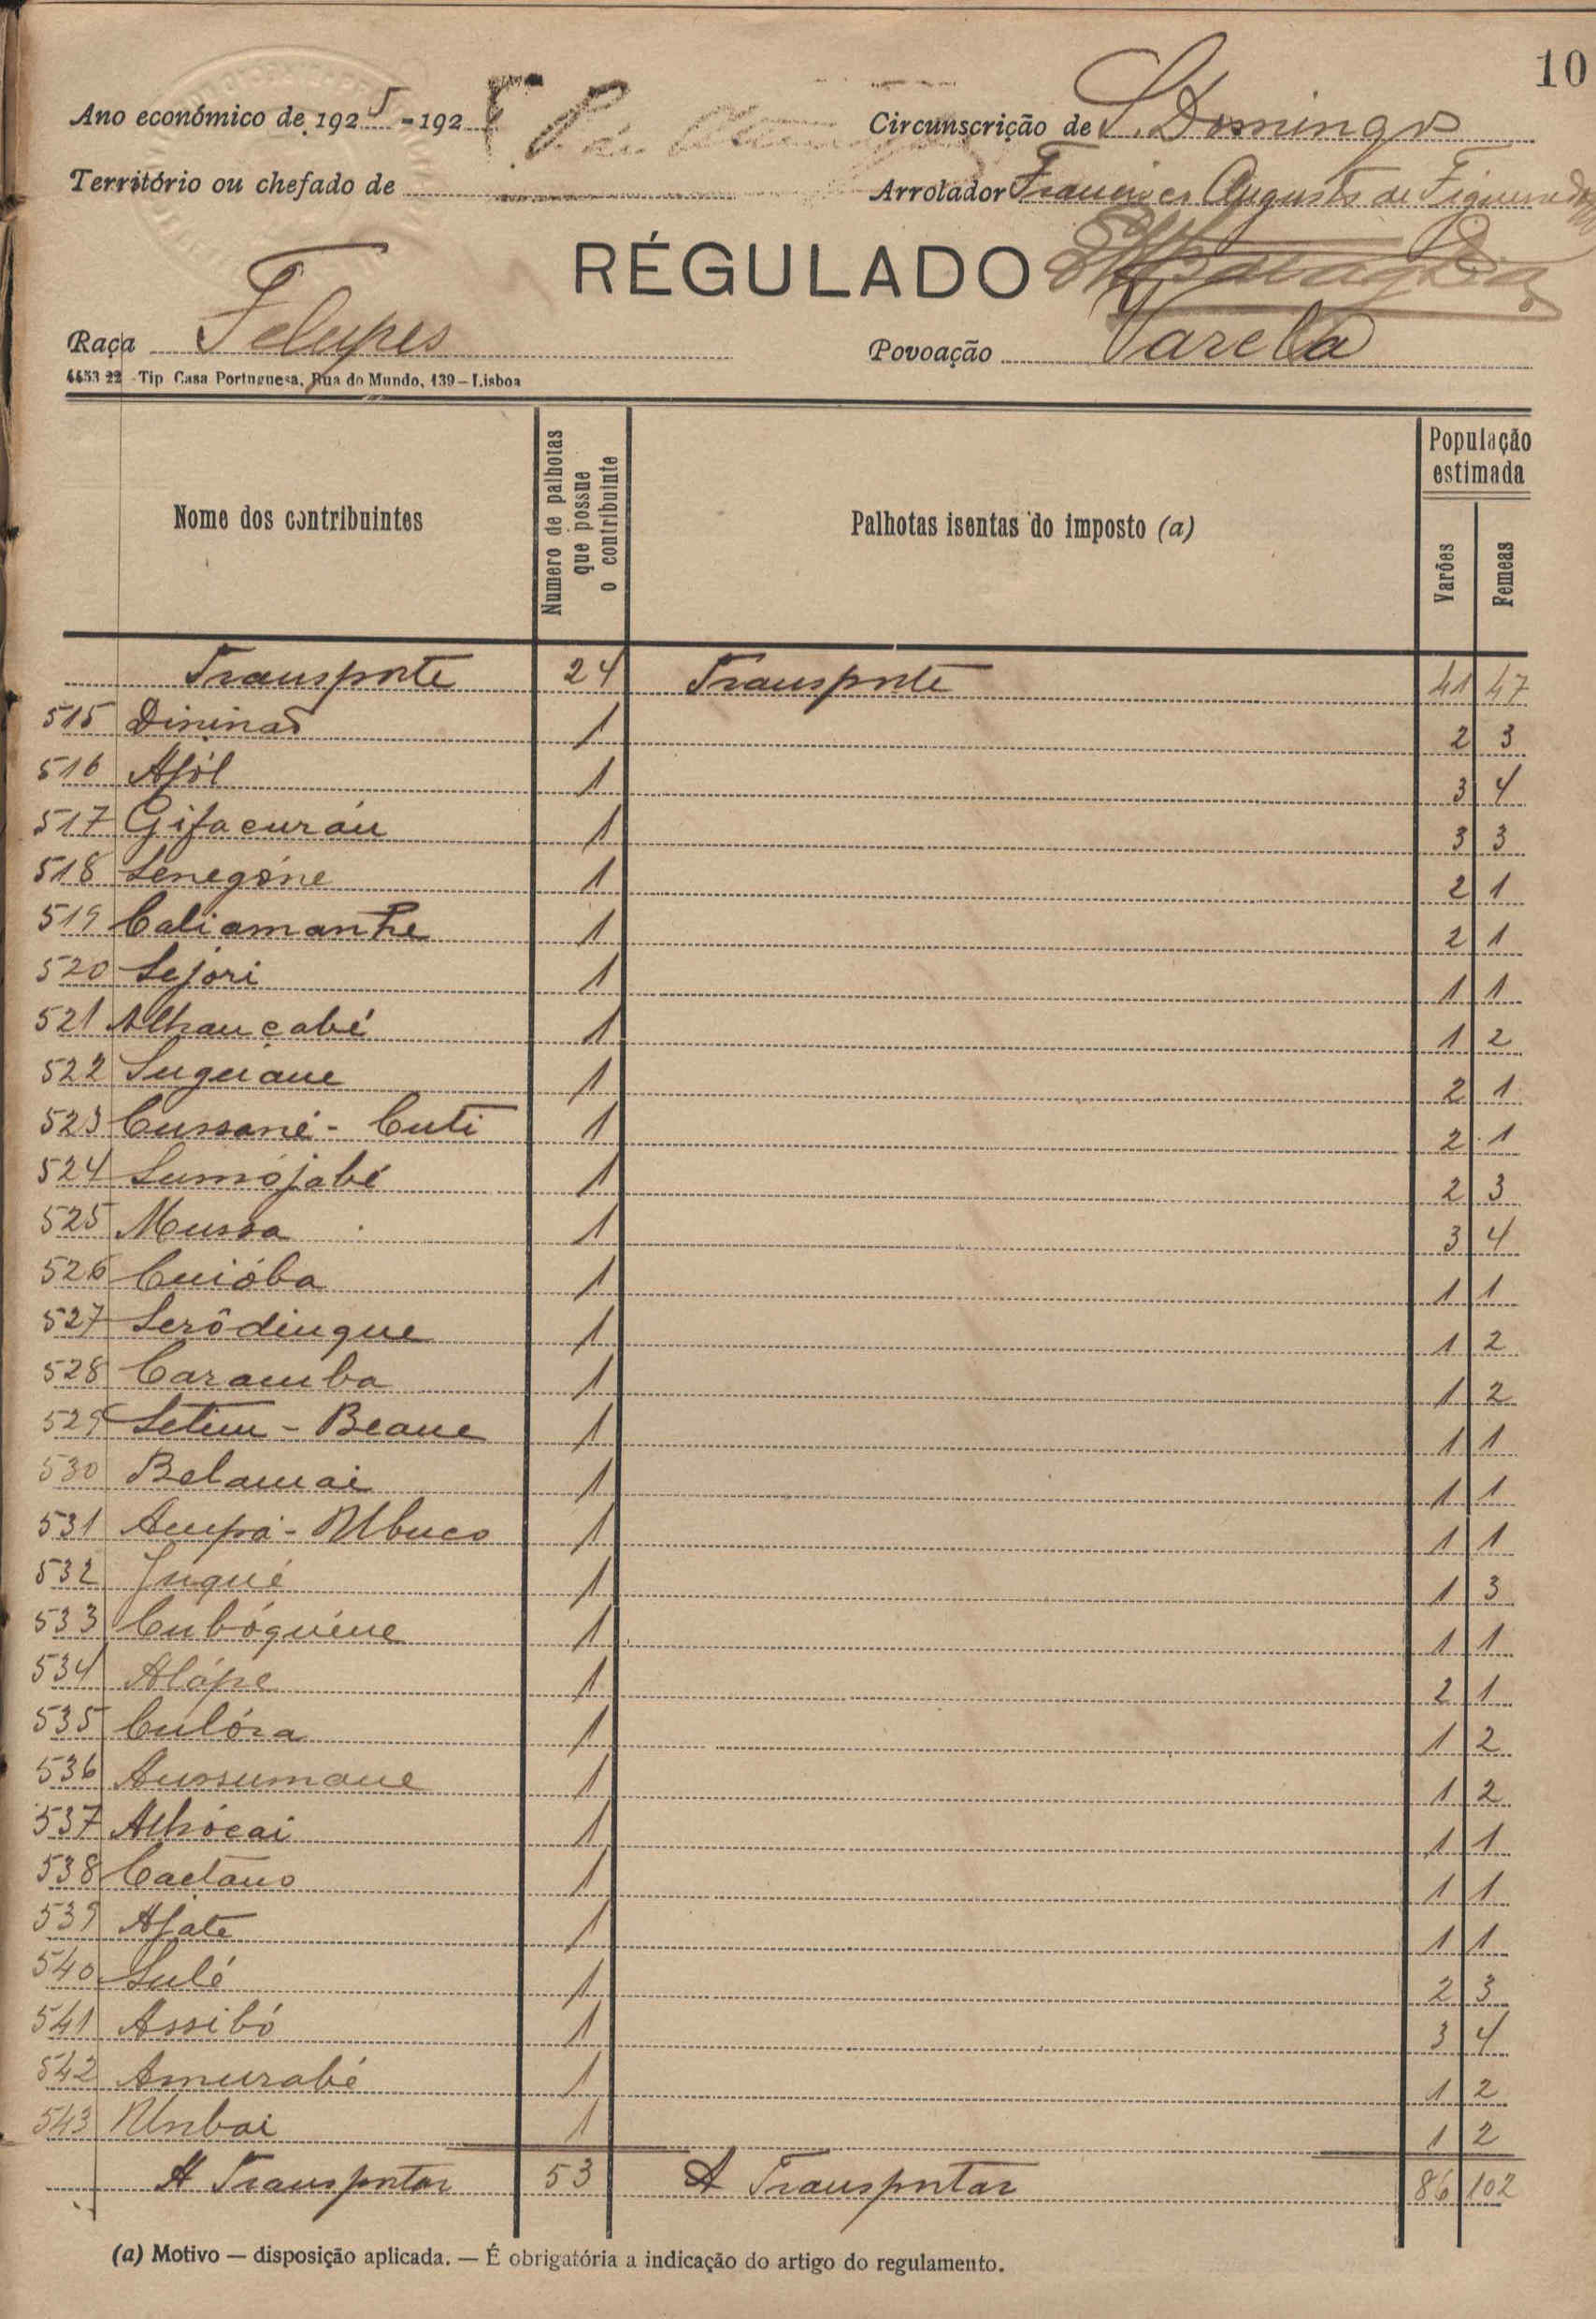 10
Ano económico de 1925 - 192
Circunscrição de S. Domingos
Território ou chefado de
Arrolador Francisco Augusto de Figueiredo
RÉGULADO
Raça Felupes
Povoação Varella
4453 22 - Tip Casa Portuguesa, Rua do Mundo, 139 - Lisboa
Nome dos contribuintes
Numero de palhotas que possue o contribuinte
Palhotas isentas do imposto (a)
População estimada
Varões
Femeas
Transporte 24 Transporte 41 47
515 Dininas 1 2 3
516 Afól 1 3 4
517 Gifacuráu 1 3 3
518 Senegóne 1 2 1
519 Caliamanhe 1 2 1
520 Sejori 1 1 1
521 Alhançabé 1 1 2
522 Suguiane 1 2 1
523 Cussané - Cuti 1 2 1
524 Sumójabé 1 2 3
525 Mussa 1 3 4
526 Cuióba 1 1 1
527 Serôdingue 1 1 2
528 Caramba 1 1 2
529 Setim - Beane 1 1 1
530 Belamai 1 1 1
531 Ampá - Mbuco 1 1 1
532 Juqué 1 1 3
533 Cubóguéne 1 1 1
534 Alópe 1 2 1
535 Culóra 1 1 2
536 Aussumane 1 1 2
537 Alhócai 1 1 1
538 Caetano 1 1 1
539 Afate 1 1 1
540 Sulé 1 2 3
541 Assibó 1 3 4
542 Amurabé 1 1 2
543 Unbai 1 1 2
A Transportar 53 A Transportar 86 102
(a) Motivo — disposição aplicada. — É obrigatória a indicação do artigo do regulamento.